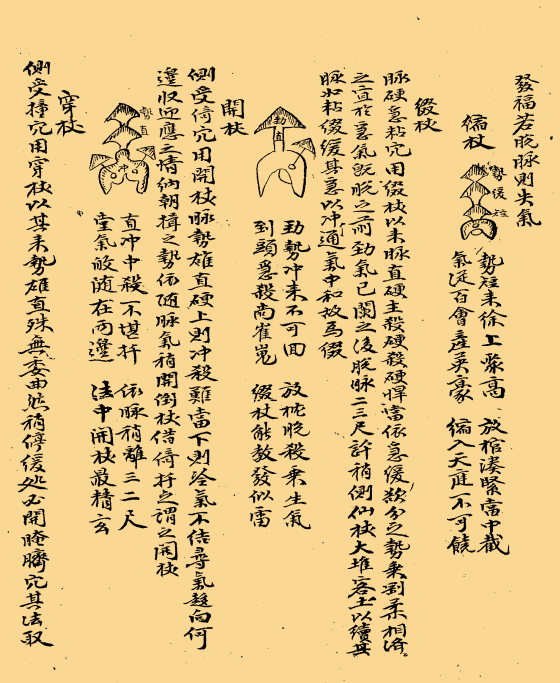 發福若脫脉則失氣
縮杖
勢緩 短
勢短来徐上聚高 放棺湊緊當中截
氣從百會產英豪 縮入天庭不可饒
缀杖
脉硬急粘穴用缀杖以未脉直硬主殺硬殺硬悍當依急缓欲分之勢乘刚柔相濟
之宜於急氣旣脫之而劲氣已闌之後脫脉二三尺許稍側仙杖大堆客土以續其
脉如粘缀缓其急以冲通氣中和故爲缀
劲 直
劲勢冲来不可回 放枕脫殺乘生氣
到頭急殺尚崔嵬 缀杖能教發似雷
開杖
側受倚穴用開杖脉勢雄直硬上則冲殺難當下則冷氣不佳尋氣趨向何
邊收迎應之情納朝揖之勢依随脉氣稍開倒杖借倚扞之謂之開杖
勢直 冲
直冲中殺不堪扞 依脉稍離三二尺
堂氣皈随在两邊 法中開杖最精玄
穿杖
側受撞穴用穿杖以其来勢雄直殊無委曲然稍停缓処必開腌臍穴其法取